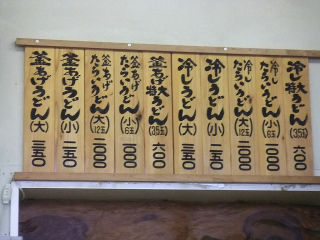 冷し特大うどん(3.5玉)六〇〇
冷したらいうどん(小6玉)一〇〇〇
冷したらいうどん(大12玉)二〇〇〇
冷しうどん(小)二五〇
冷しうどん(大)三五〇
釜あげ特大うどん(3.5玉)六〇〇
釜あげたらいうどん(小6玉)一〇〇〇
釜あげたらいうどん(大12玉)二〇〇〇
釜あげうどん(小)二五〇
釜あげうどん(大)三五〇